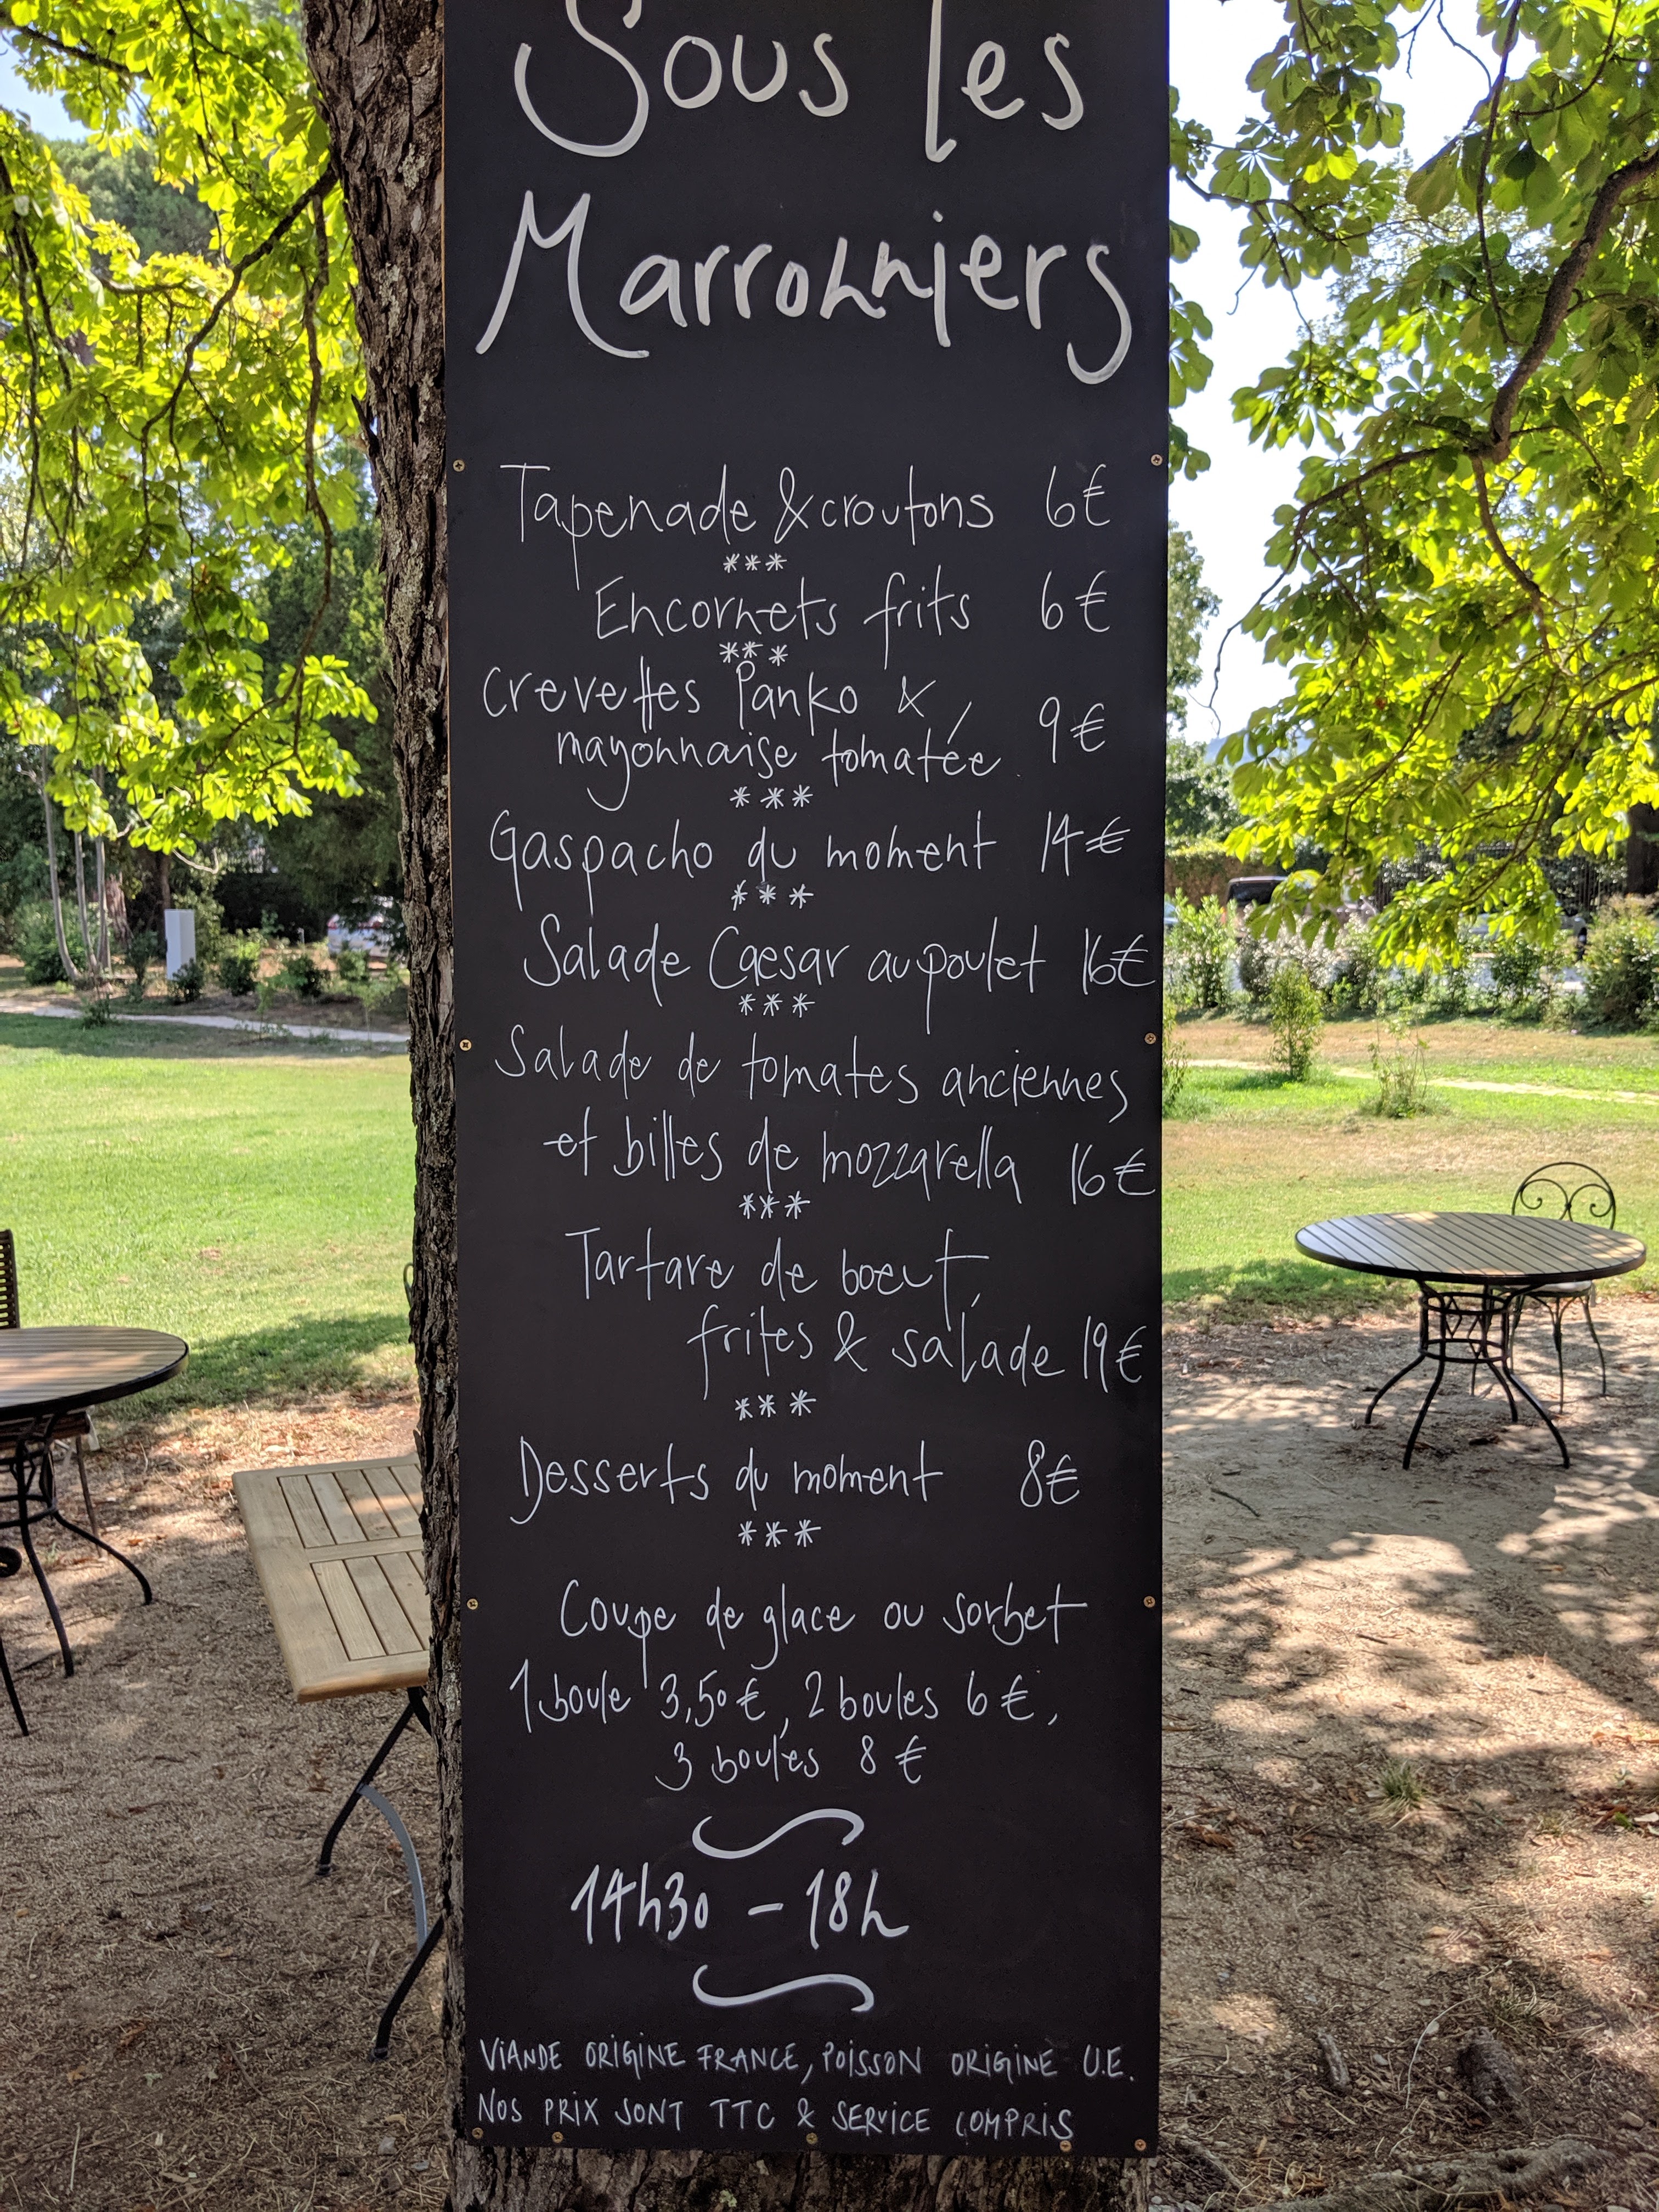 Sous les
Marronniers
Tapenade & croutons 6€
***
Encornets frits 6€
***
Crevettes Panko &
mayonnaise tomatée 9€
***
Gaspacho du moment 14€
***
Salade Caesar au poulet 16€
***
Salade de tomates anciennes
et billes de mozzarella 16€
***
Tartare de boeuf,
frites & salade 19€
***
Desserts du moment 8€
***
Coupe de glace ou sorbet
1 boule 3,50€, 2 boules 6€,
3 boules 8€
14h30 - 18h
VIANDE ORIGINE FRANCE, POISSON ORIGINE U.E.
NOS PRIX SONT TTC & SERVICE COMPRIS